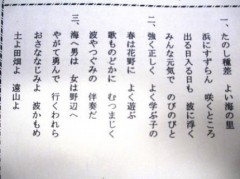 一、たのし種差　よい海の里
浜にすずらん　咲くところ
出る日入る日も　波に浮く
みんな元気で　のびのびと
二、強く正しく　よく学ぶ子の
春は花野に　よく遊ぶ
歌ものどかに　むつまじく
波やつぐみの　伴奏だ
三、海へ男は　女は野辺へ
やがて勇んで　行くわれら
おさななじみよ　波かもめ
土よ田畑よ　遠山よ